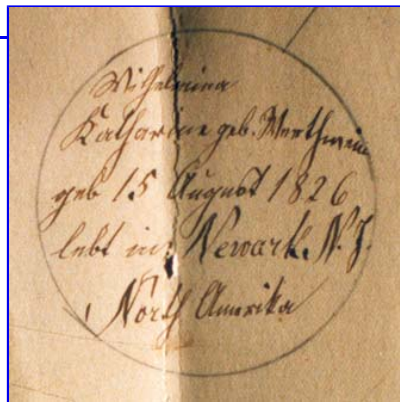 Wilhelmina
Katharine geb. Werthwein
geb 15 August 1826
lebt in Newark, N.J.
North Amerika